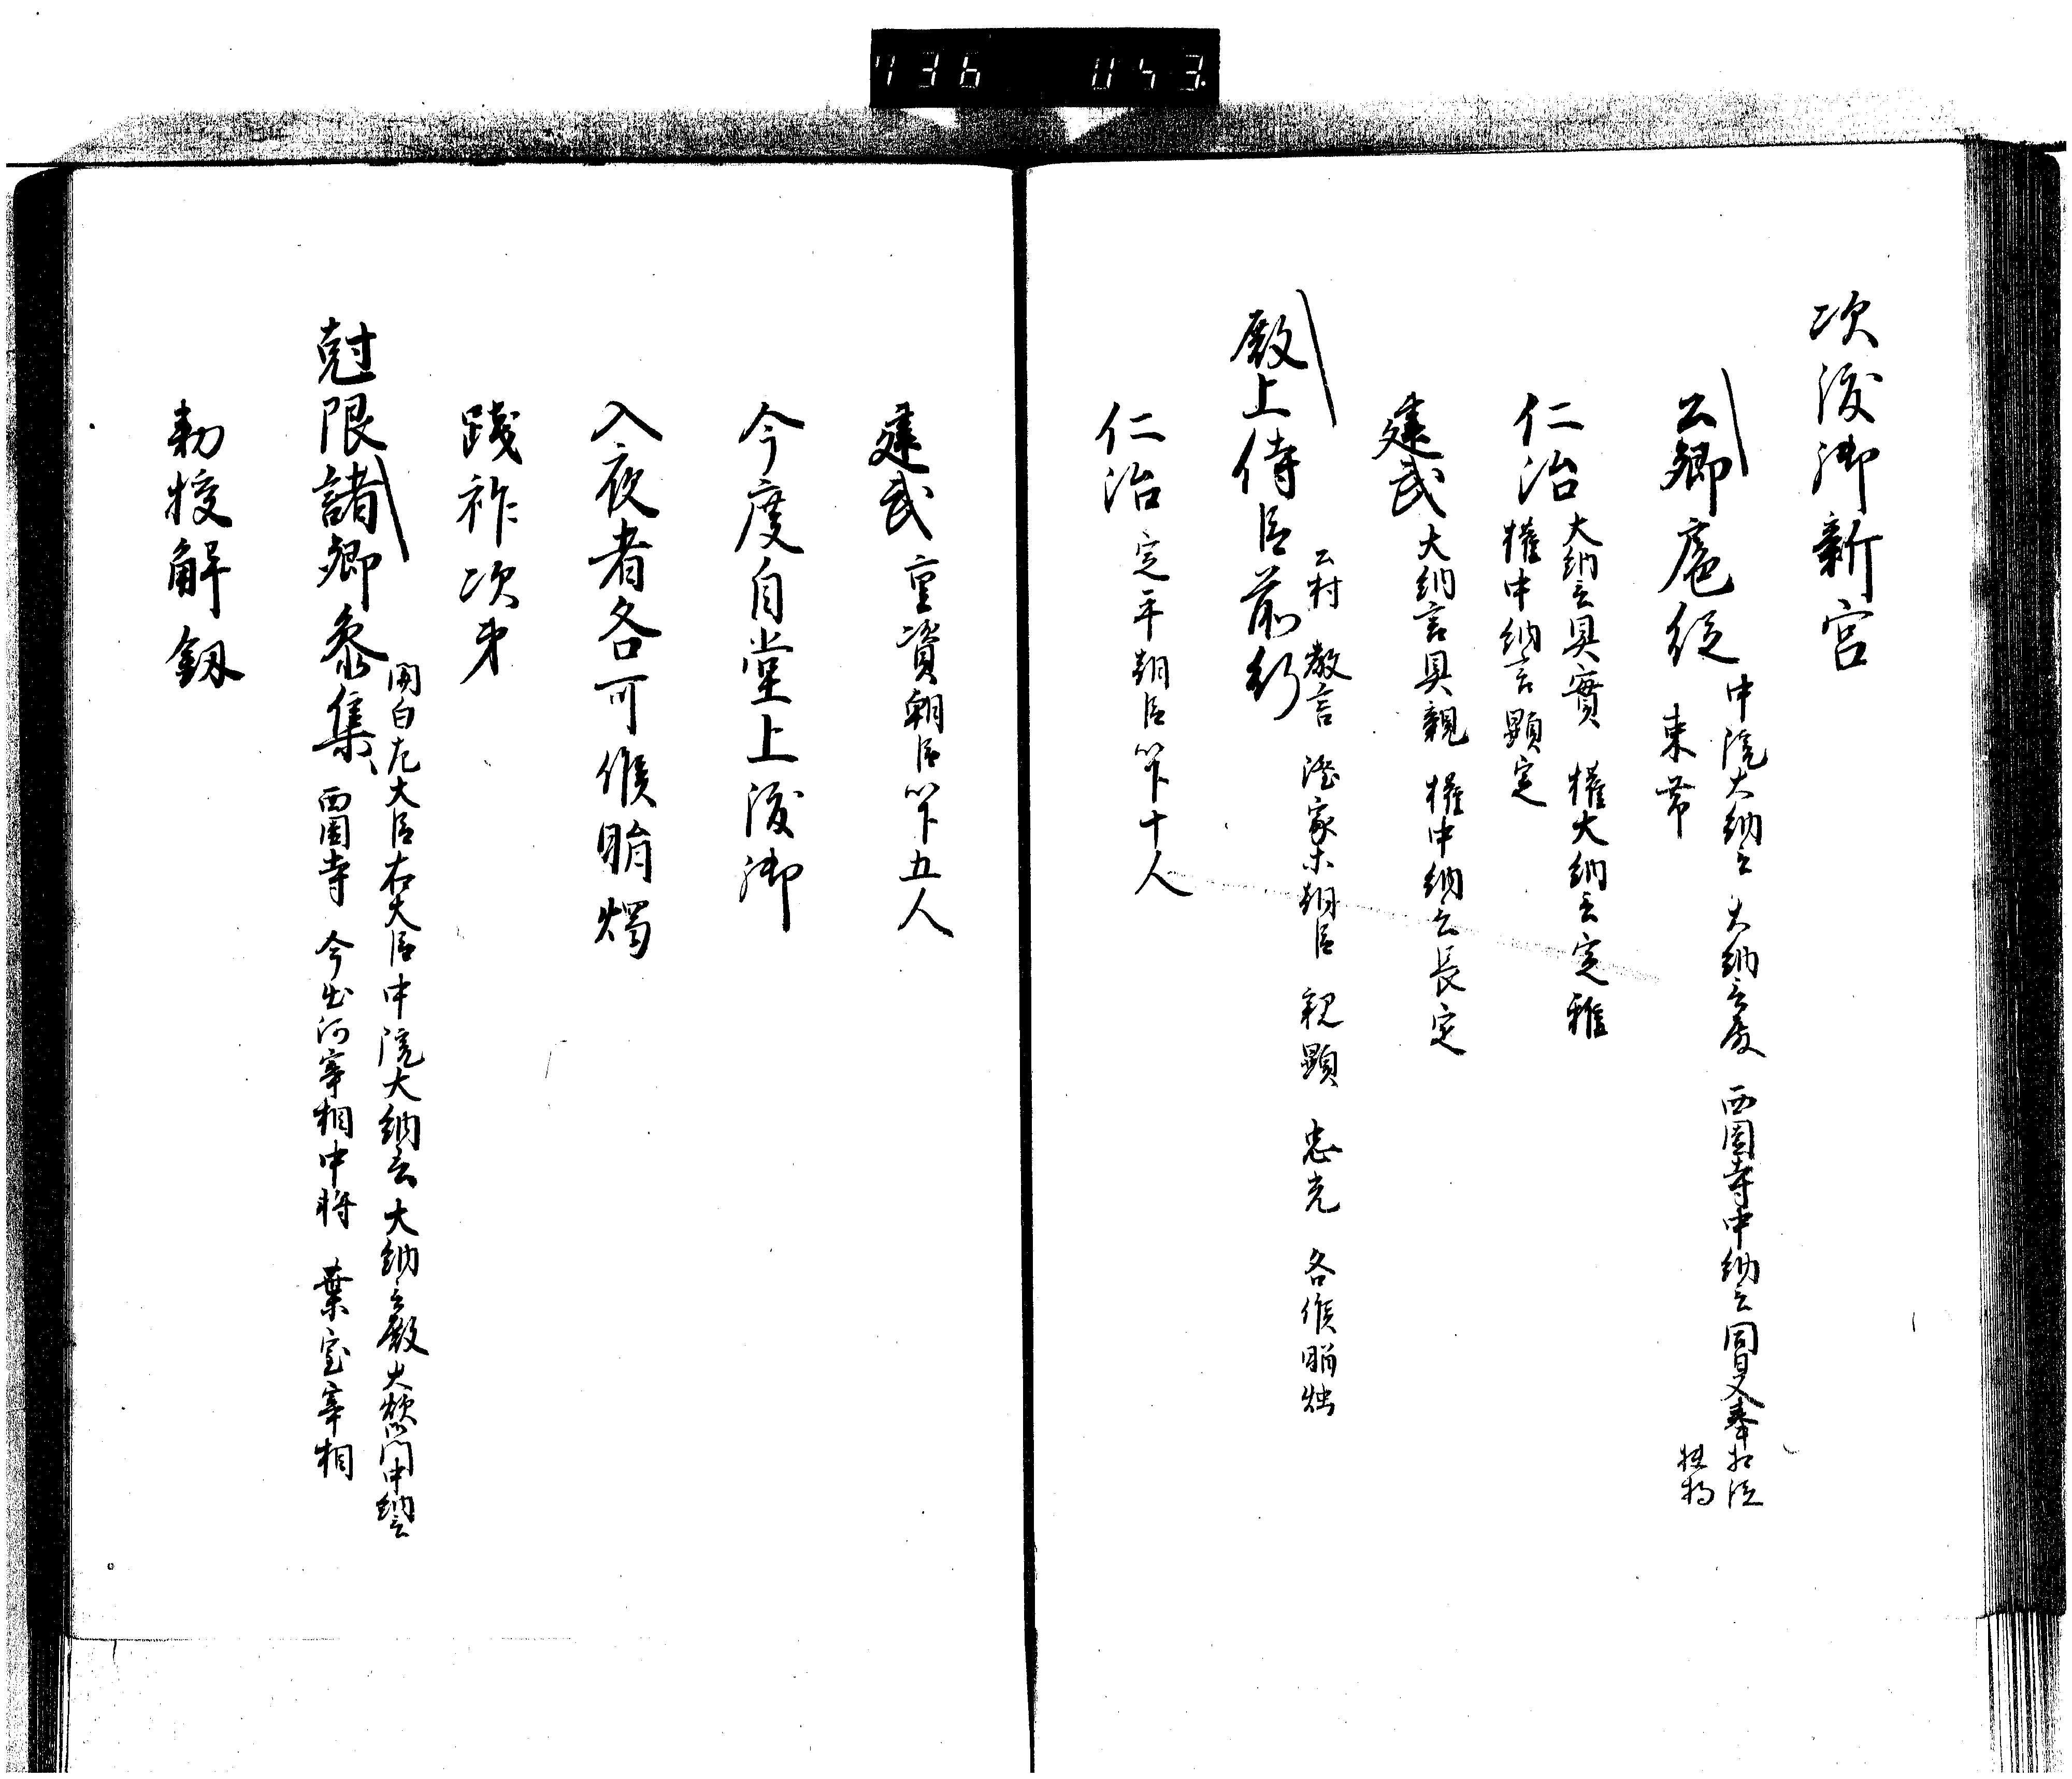 736 053
次渡御新宮
公卿扈従 束帯
中院大納言 大納言殿 西園寺中納言
仁治 大納言具実 権大納言定雅
権中納言顕定
建武 大納言具親 権中納言長定
殿上侍臣前行
公村 教言 澄家等朝臣 親顕 忠光 各候脂燭
仁治 定平朝臣以下十人
建武 重資朝臣以下五人
今度自堂上渡御
入夜者各可候脂燭
践祚次第
尅限諸卿参集
関白左大臣右大臣中院大納言 大納言殿 大炊御門中納言
西園寺 今出河宰相中将 葉室宰相
勅授解剱